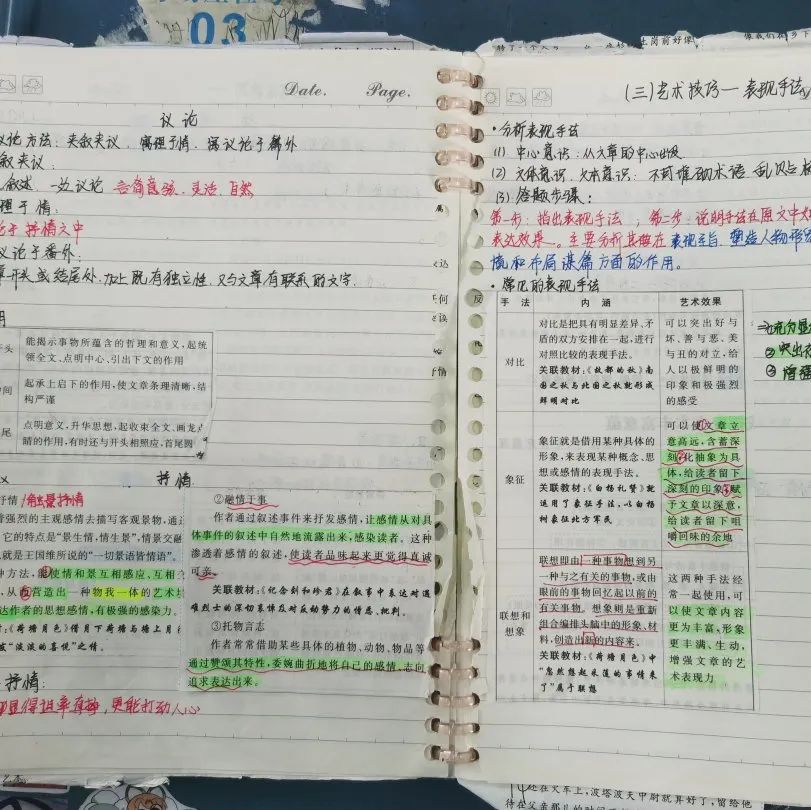 03
Date. Page.
议论
议论方法：夹叙夹议、寓理于情、寓议论于篇外
叙夹议：
叙述，一边议论 言简意骇、灵活、自然
理于情：
于抒情文中
议论于番外：
开头或结尾处，加上既有独立性，又与文章有联系的文字.
开头
能揭示事物所蕴含的哲理和意义，起统
领全文、点明中心、引出下文的作用
间
起承上启下的作用，使文章条理清晰，结
构严谨
尾
点明意义，升华思想，起收束全文、画龙点
睛的作用，有时还与开头相照应，首尾圆
抒情
抒情
强烈的主观感情去描写客观景物，通过
它的特点是“景生情，情生景”，情景交融
就是王国维所说的“一切景语皆情语”。
种方法，能使情和景互相感应，互相交
，从而营造出一种物我一体的艺术
达作者的思想感情，有极强的感染力。
《荷塘月色》借月下荷塘与塘上月
“淡淡的喜悦”之情。
②融情于事
作者通过叙述事件来抒发感情，让感情从对具
体事件的叙述中自然地流露出来，感染读者。这种
渗透着感情的叙述，使读者品味起来更觉得真诚
可亲。
关联教材：《记念刘和珍君》在叙事中表达对遇
难烈士的深切哀悼及对反动势力的愤怒、批判。
③托物言志
作者常常借助某些具体的植物、动物、物品等，
通过赞颂其特性，委婉曲折地将自己的感情、志向、
追求表达出来。
抒情：
显得坦率真挚，更能打动人心
(三)艺术技巧—表现手法
·分析表现手法
(1) 中心意识：从文章的中心出发
(2) 文体意识、文本意识：不可堆砌术语，乱贴
(3) 答题步骤：
第一步：指出表现手法，第二步：说明手法在原文中
表达效果。主要分析其在表现主旨、塑造人物形
和布局谋篇方面的作用。
·常见的表现手法
手法 内涵 艺术效果
对比
对比是把具有明显差异、矛
盾的双方安排在一起，进行
对照比较的表现手法。
关联教材：《故都的秋》南
国之秋与北国之秋就形成
鲜明对比
可以突出好与
坏、善与恶、美
与丑的对立，给
人以极鲜明的
印象和极强烈
的感受
②突出
③增强
象征
象征就是借用某种具体的
形象，来表现某种概念、思
想或感情的表现手法。
关联教材：《白杨礼赞》就
运用了象征手法，以白杨
树象征北方军民
可以使文章立
意高远，含蓄深
刻；化抽象为具
体，给读者留下
深刻的印象；赋
予文章以深意，
给读者留下咀
嚼回味的余地
联想和
想象
联想即由一种事物想到另
一种与之有关的事物，或由
眼前的事物回忆起以前的
有关事物。想象则是重新
组合编排头脑中的形象、材
料，创造出新的内容来。
关联教材：《荷塘月色》中
“忽然想起采莲的事情来
了”属于联想
这两种手法经
常一起使用，可
以使文章内容
更为丰富，形象
更丰满、生动，
增强文章的艺
术表现力
还在火车上，波塔波夫中尉就真好了，留给他